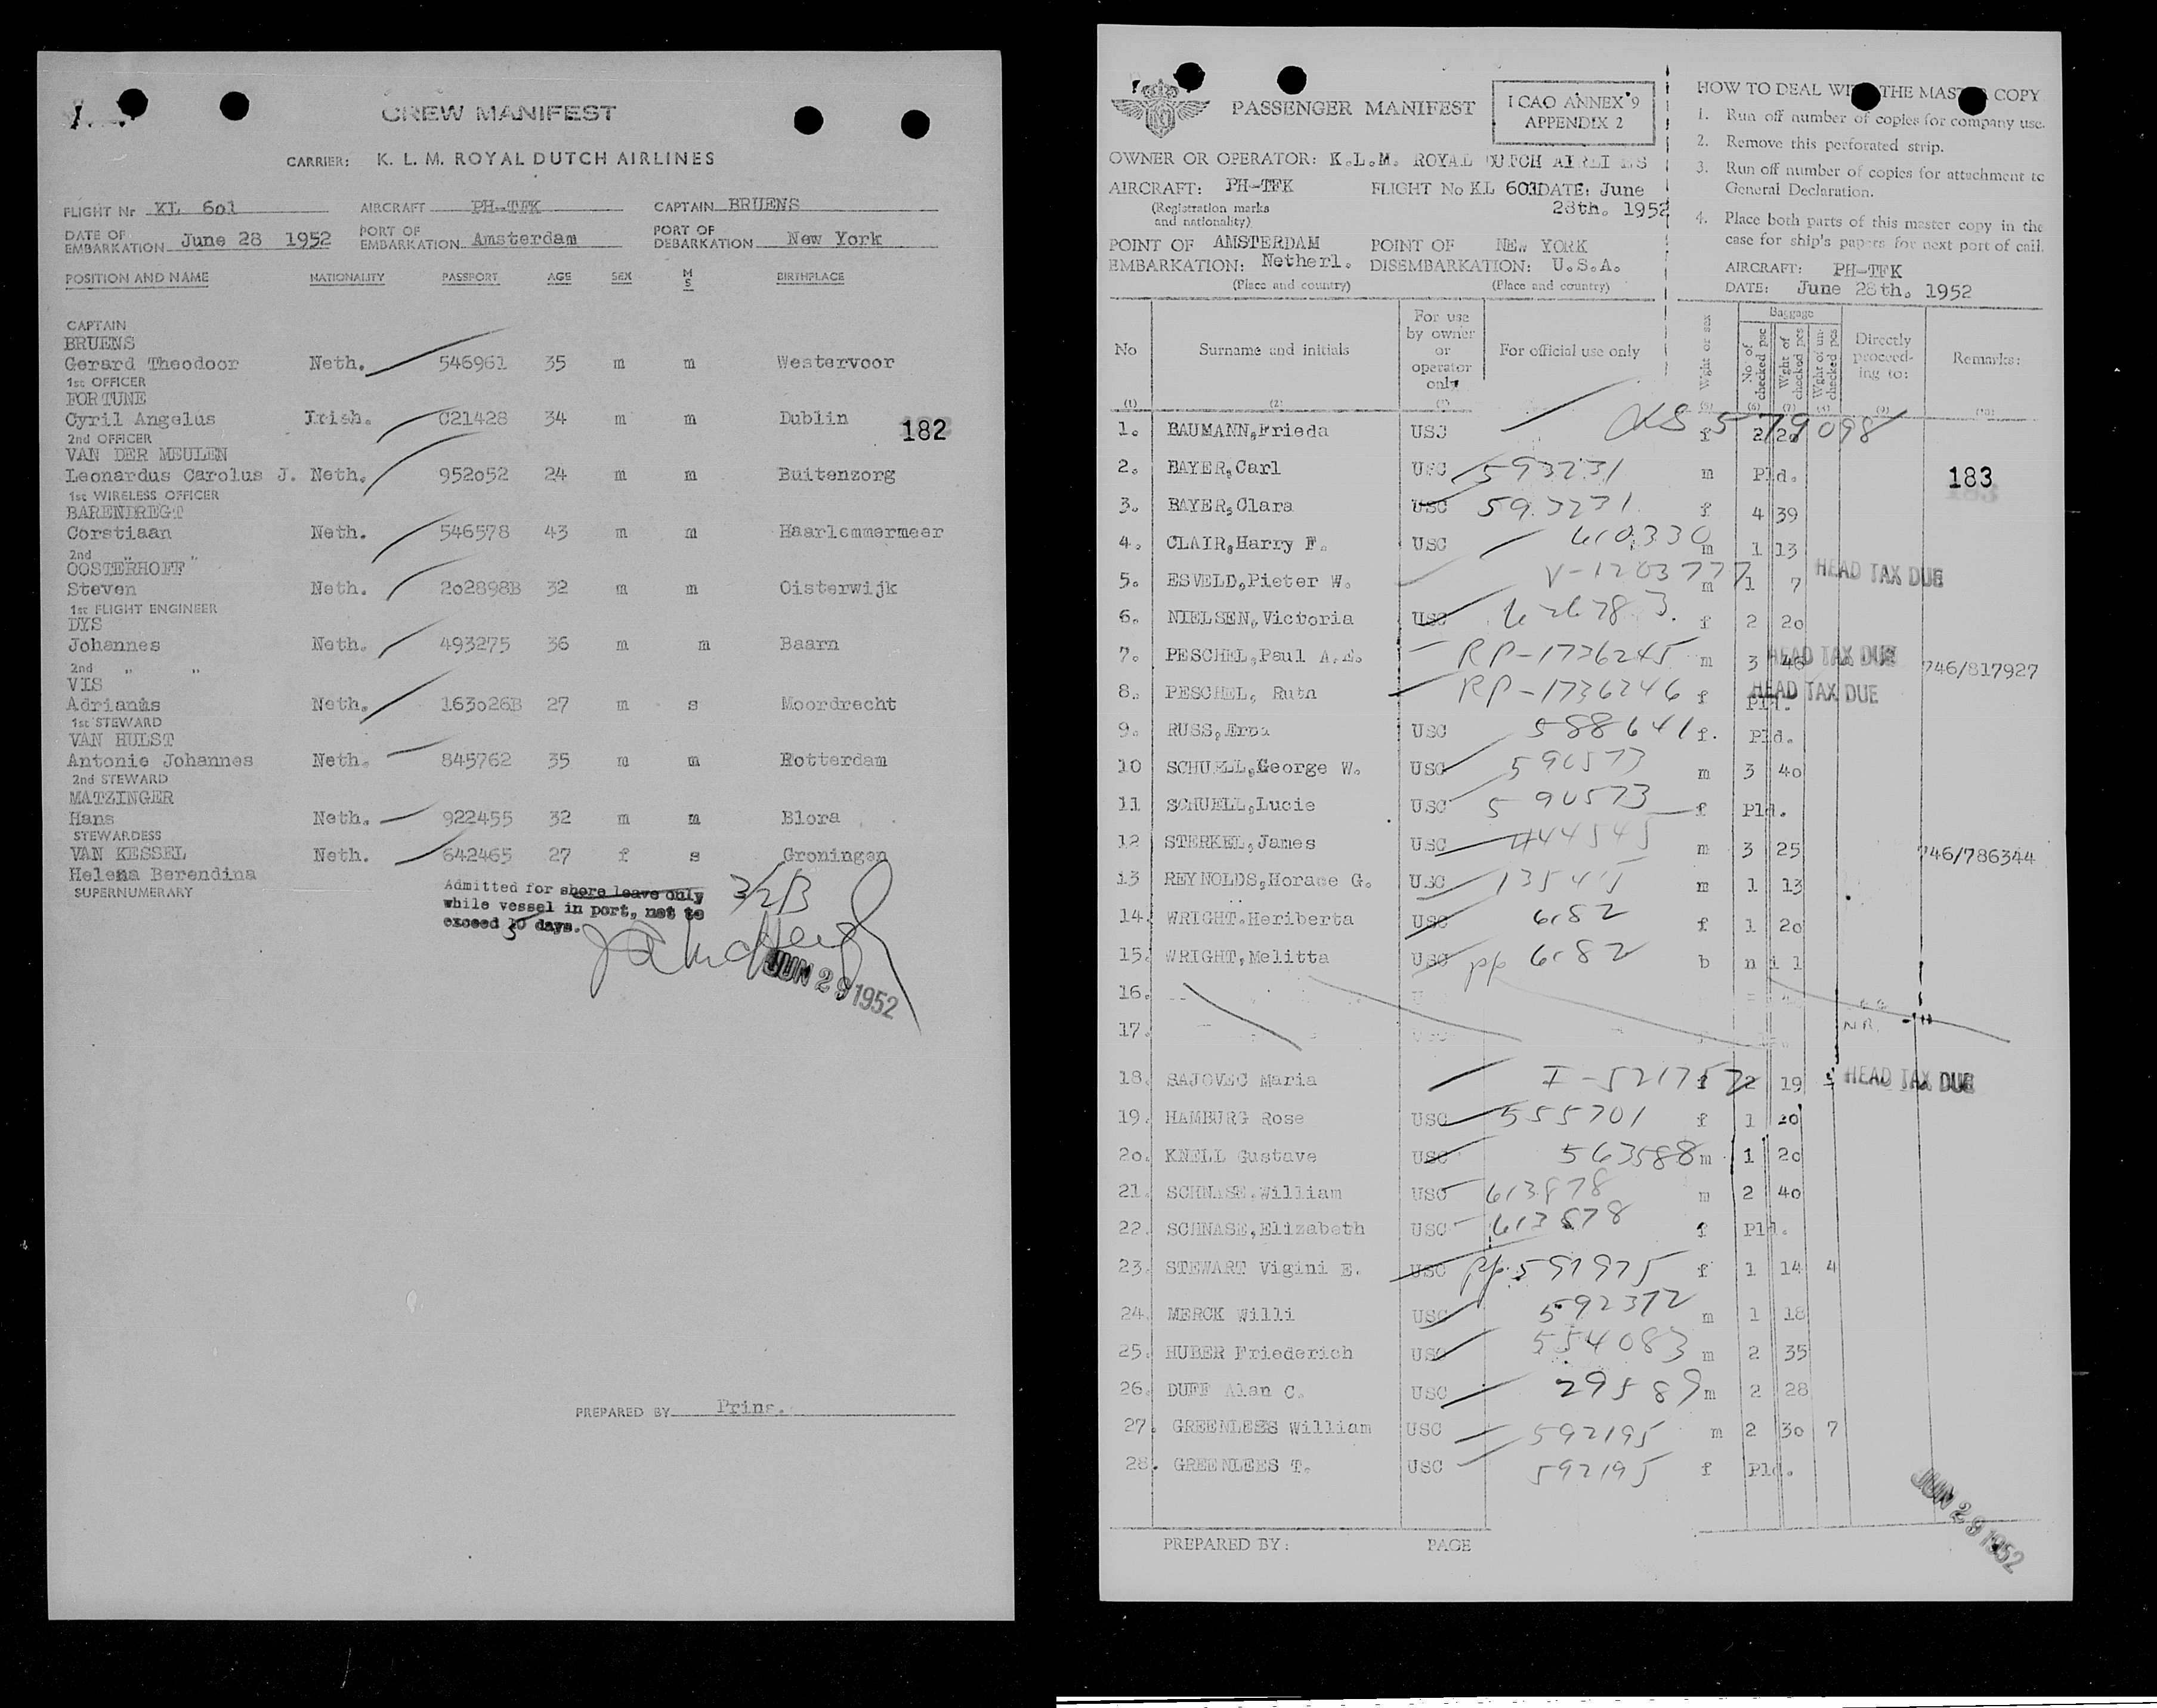 CREW MANIFEST
CARRIER: K. L. M. ROYAL DUTCH AIRLINES
FLIGHT Nr KL 6o1 AIRCRAFT PH-TFK CAPTAIN BRUENS
DATE OF EMBARKATION June 28 1952 PORT OF EMBARKATION Amsterdam PORT OF DEBARKATION New York
POSITION AND NAME NATIONALITY PASSPORT AGE SEX M S BIRTHPLACE
CAPTAIN
BRUENS
Gerard Theodoor Neth. 546961 35 m m Westervoor
1st OFFICER
FORTUNE
Cyril Angelus Irish. C21428 34 m m Dublin
182
2nd OFFICER
VAN DER MEULEN
Leonardus Carolus J. Neth. 952o52 24 m m Buitenzorg
1st WIRELESS OFFICER
BARENDREGT
Corstiaan Neth. 546578 43 m m Haarlemmermeer
2nd " "
OOSTERHOFF
Steven Neth. 2o2898B 32 m m Oisterwijk
1st FLIGHT ENGINEER
DYS
Johannes Neth. 493275 36 m m Baarn
2nd " "
VIS
Adrianus Neth. 163o26B 27 m s Moordrecht
1st STEWARD
VAN HULST
Antonie Johannes Neth. 845762 35 m m Rotterdam
2nd STEWARD
MATZINGER
Hans Neth. 922455 32 m m Blora
STEWARDESS
VAN KESSEL Neth. 642465 27 f s Groningen
Helena Berendina
SUPERNUMERARY
Admitted for shore leave only
while vessel in port, not to
exceed days.
3/2B
JUN 29 1952
PREPARED BY Prins.
PASSENGER MANIFEST
ICAO ANNEX 9
APPENDIX 2
OWNER OR OPERATOR: K.L.M. ROYAL DUTCH AIRLINES
AIRCRAFT: PH-TFK FLIGHT No KL 601 DATE: June
28th. 1952
(Registration marks
and nationality)
POINT OF EMBARKATION: AMSTERDAM Netherl. POINT OF DISEMBARKATION: NEW YORK U.S.A.
(Place and country) (Place and country)
HOW TO DEAL WITH THE MASTER COPY
1. Run off number of copies for company use.
2. Remove this perforated strip.
3. Run off number of copies for attachment to
General Declaration.
4. Place both parts of this master copy in the
case for ship's papers for next port of call.
AIRCRAFT: PH-TFK
DATE: June 28th. 1952
No Surname and initials For use by owner or operator only For official use only Wght or sex Baggage No. of checked pcs Wght of checked pcs Wght of un-checked pcs Directly proceed-ing to: Remarks:
(1) (2) (3) (5) (6) (7) (8) (9) (10)
1. BAUMANN,Frieda USC 579098 f 2 20
2. BAYER,Carl USC 593231 m Pld.
183
3. BAYER,Clara USC 593231 f 4 39
4. CLAIR,Harry F. USC 610330 m 1 13
5. ESVELD,Pieter W. V-1203777 m 1 7 HEAD TAX DUE
6. NIELSEN,Victoria USC 626783 f 2 2o
7. PESCHEL,Paul A.E. RP-1736245 m 3 46 HEAD TAX DUE 746/817927
8. PESCHEL, Ruth RP-1736246 f Pld. HEAD TAX DUE
9. RUSS,Erna USC 588641 f. Pld.
10 SCHUELL,George W. USC 590573 m 3 4o
11 SCHUELL,Lucie USC 590573 f Pld.
12 STERKEL,James USC 444545 m 3 25 746/786344
13 REYNOLDS,Horace G. USC 13545 m 1 13
14. WRIGHT.Heriberta USC 6182 f 1 2o
15. WRIGHT,Melitta USC pp 6182 b nil
16.
17. N.R.
18. SAJOVEC Maria I-521752 f 2 19 HEAD TAX DUE
19. HAMBURG Rose USC 555701 f 1 20
2o. KNELL Gustave USC 563588 m 1 2o
21. SCHNASE,William USC 613878 m 2 4o
22. SCHNASE,Elizabeth USC 613878 f Pld.
23. STEWART Vigini E. USC pp.591975 f 1 14 4
24. MERCK Willi USC 592372 m 1 18
25. HUBER Friederich USC 554083 m 2 35
26. DUFF Alan C. USC 29589 m 2 28
27. GREENLEES William USC 592195 m 2 30 7
28. GREENLEES T. USC 592195 f Pld.
JUN 29 1952
PREPARED BY: PAGE